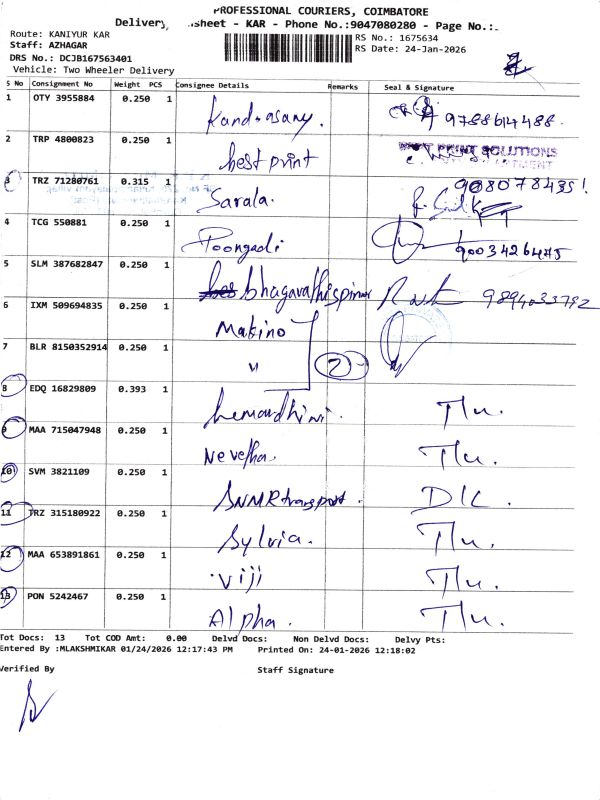 PROFESSIONAL COURIERS, COIMBATORE
sheet - KAR - Phone No.:9047080280 - Page No.:
Route: KANIYUR KAR
RS No.: 1675634
Staff: AZHAGAR
RS Date: 24-Jan-2026
DRS No.: DCJB167563401
Vehicle: Two Wheeler Delivery
S No Consignment No Weight PCS Consignee Details Remarks Seal & Signature
1 OTY 3955884 0.250 1
2 TRP 4800823 0.250 1 best print PRINT SOLUTIONS
3 TRZ 71280761 0.315 1 Sarala.
4 TCG 550881 0.250 1 Poongadi 9003426475
5 SLM 387682847 0.250 1
6 IXM 509694835 0.250 1 Makino
7 BLR 8150352914 0.250 1 " 2
8 EDQ 16829809 0.393 1 Tlu.
9 MAA 715047948 0.250 1 Nevetha. Tlu.
10 SVM 3821109 0.250 1 SNMR transport. D/C.
11 TRZ 315180922 0.250 1 Sylvia. Tlu.
12 MAA 653891861 0.250 1 viji Tlu.
13 PON 5242467 0.250 1 Alpha. Tlu.
Tot Docs: 13 Tot COD Amt: 0.00 Delvd Docs: Non Delvd Docs: Delvy Pts:
Entered By :MLAKSHMIKAR 01/24/2026 12:17:43 PM Printed On: 24-01-2026 12:18:02
Verified By Staff Signature